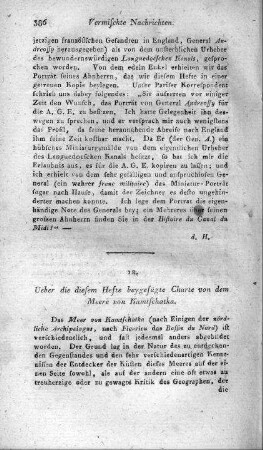 386 Vermischte Nachrichten.
jetzigen französischen Gesandten in England, General An-
dreossy herausgegeben) als von dem ursprünglichen Urheber
des bewundernswürdigen Languedokschen Kanals, gespro-
chen worden. Von dem edeln Enkel erhielten wir das
Porträt seines Ahnherrn, das wir diesem Hefte in einer
getreuen Kopie beylegen. Unser Pariser Korrespondent
schrieb uns dabey folgendes: „Sie äusserten vor einiger
Zeit den Wunsch, das Porträt von General Andreossy für
die A. G. E. zu haben. Ich legte Gelegenheit ihn des-
wegen zu sprechen, und er versprach mir auch wenigstens
das Profil, da freylich seine nahe Abreise nach England
ihm seine Zeit kostbar macht. Da Er (der Gen. A.) ein
hübsches Miniaturgemälde von seinem Ahnherrn, dem Urheber
des Languedokschen Kanals besitzt, so ergänzte ich mir die
Erlaubniss aus, es für die A. G. E. kopieren zu lassen; und
ich erhielt von dem sehr gefälligen und anspruchlosen Ge-
neral (ein wahrer franc militaire) das Miniatur-Porträt
sogar nach Hause, damit der Zeichner es desto ungehinderter
kopieren möchte. Ich lege dem Porträt die eigenhän-
dige Note des Generals bey; ein Mehreres über seinen
grossen Ahnherrn finden Sie in der Histoire du Canal du
Midi!—
d. H.
18.
Ueber die diesem Hefte beygefügte Charte von dem
Meere von Kamtschatka.
Das Meer von Kamtschatka (nach Einigen der nörd-
liche Archipelagus, nach Fleurieu das Bassin du Nord) ist
verschiedentlich, und fast jedesmal anders abgebildet
worden. Der Grund lag in der Natur des zu zeichnen-
den Gegenstandes und den verschiedenartigen Kennt-
nissen der Entdecker der Küsten dieses Meeres auf der ei-
nen Seite sowohl, als auf der andern eine oft etwas zu
treuherzige oder zu gewagte Kritik des Geographen, der
die